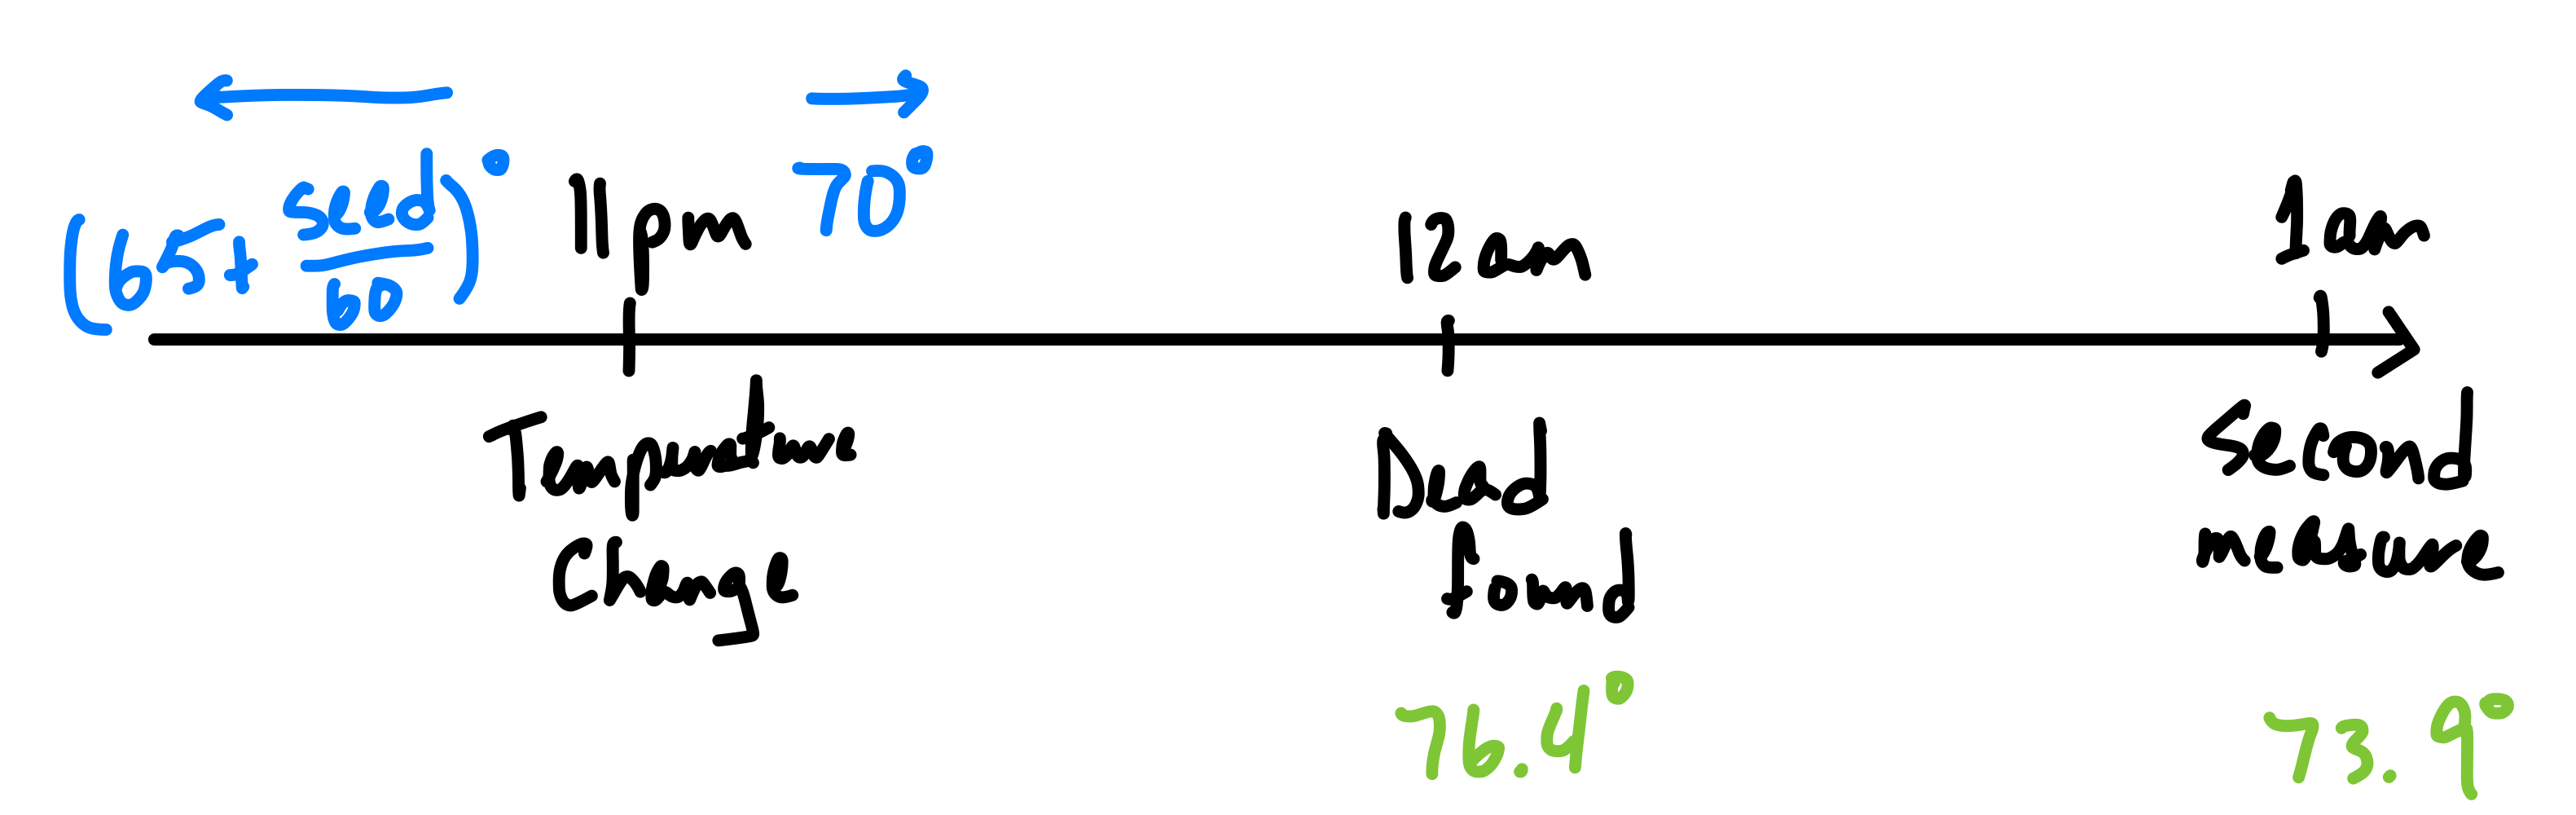 (65+ seed/60)°
11pm
70°
12am
1am
Temperature
Change
Dead
found
Second
measure
76.4°
73.9°